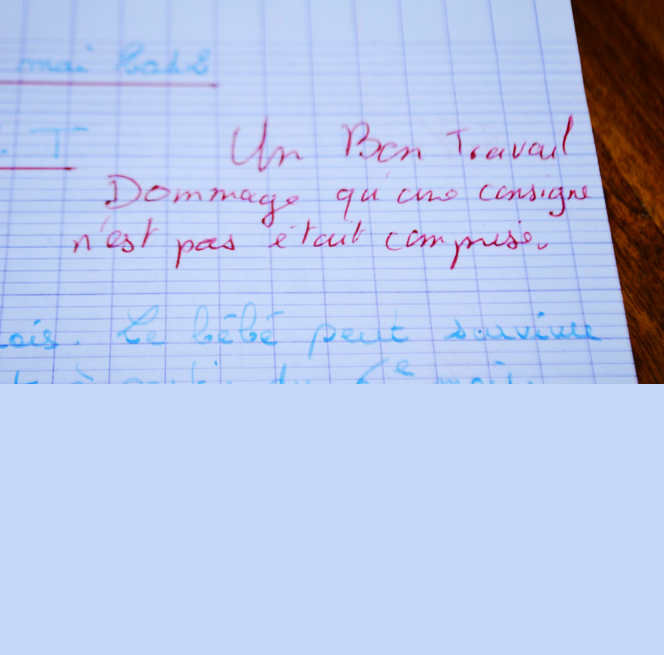 mai
T
Un Bon Travail
Dommage qu'une consigne
n'est pas était comprise.
ois. Le bébé peut survivre
à du 6e mois.